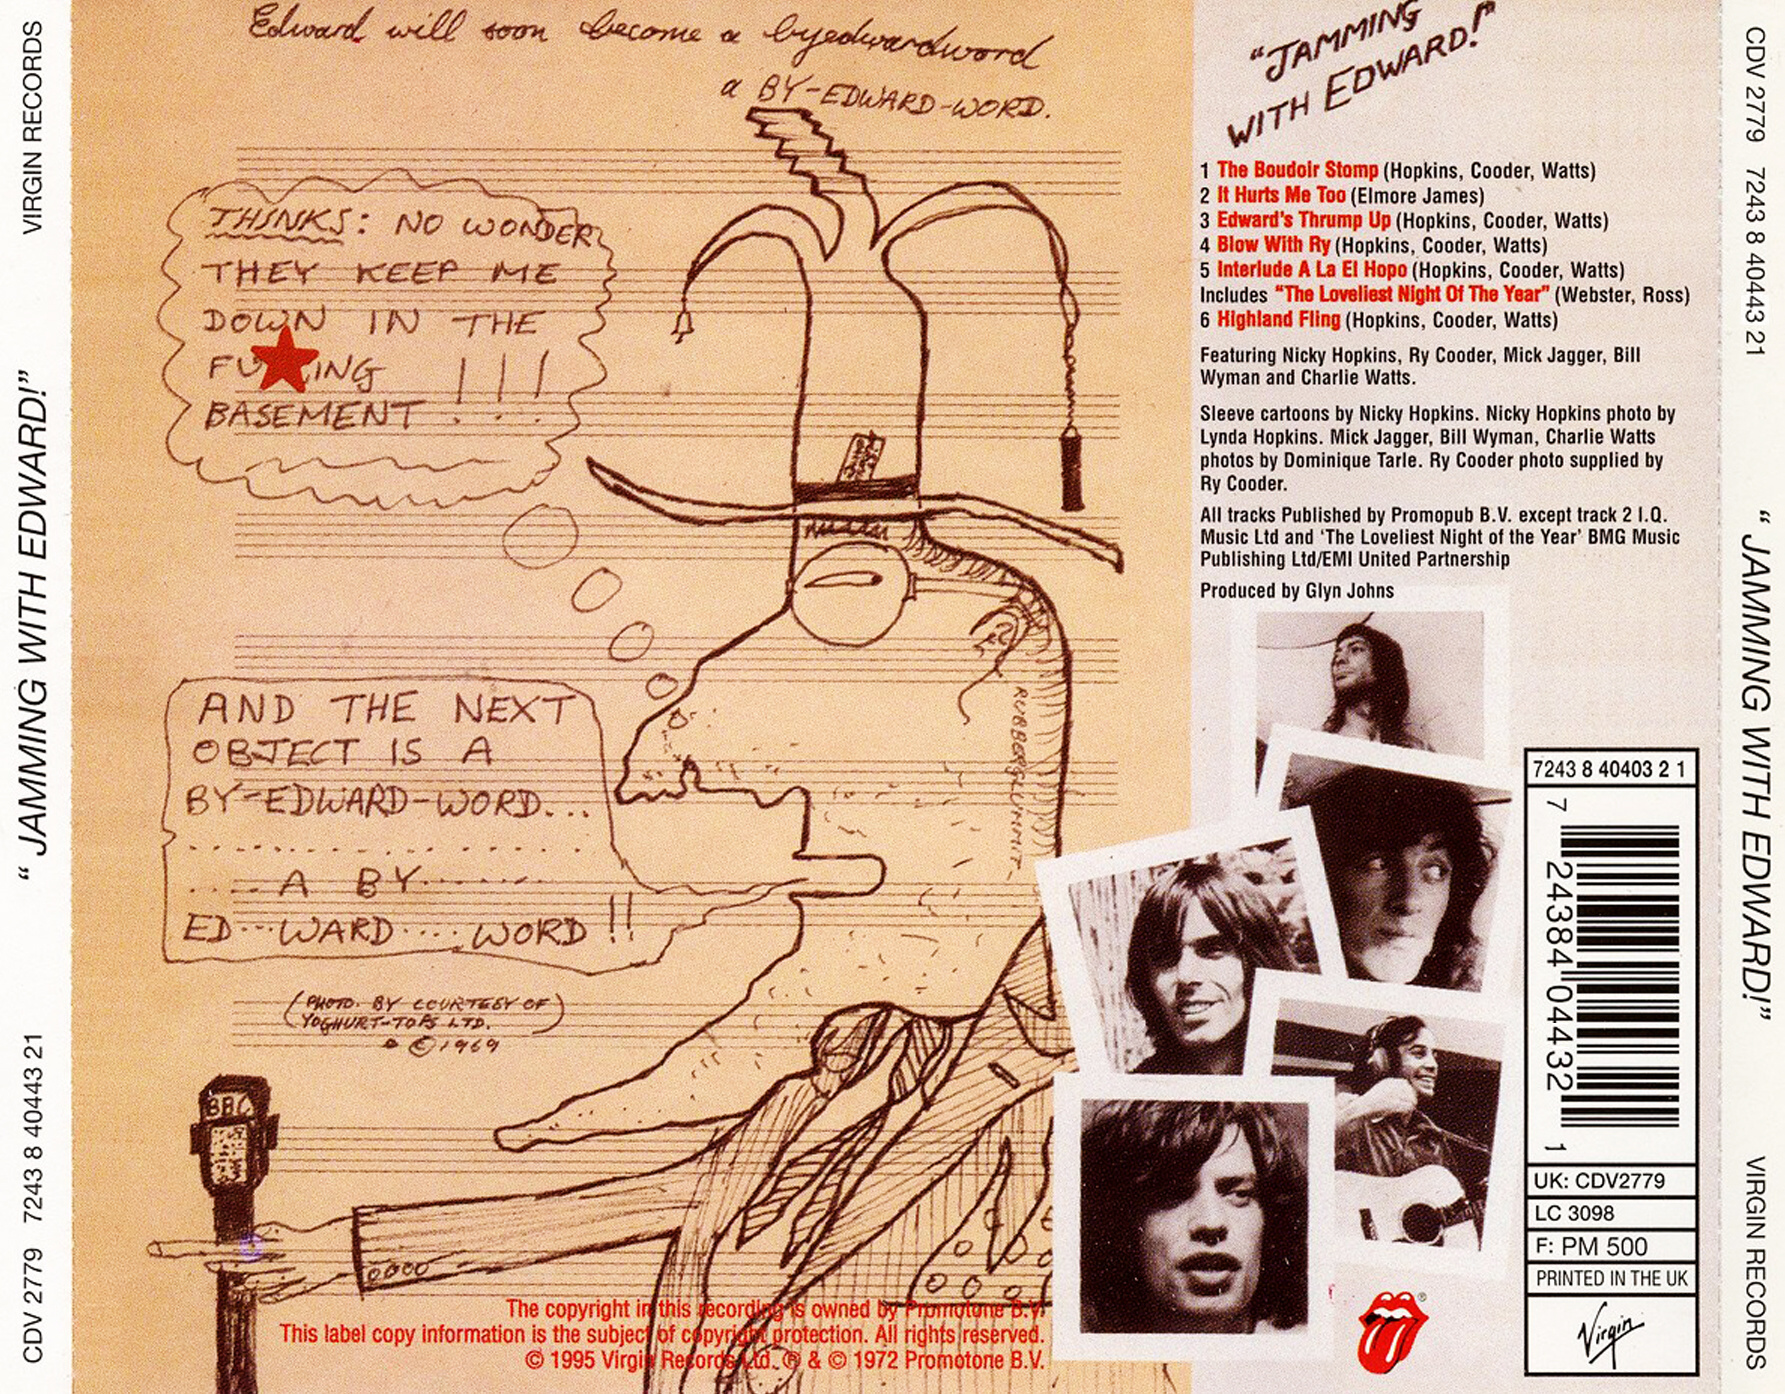 VIRGIN RECORDS
“JAMMING WITH EDWARD!”
CDV 2779 7243 8 40443 21
Edward will soon become a byedwardword
a BY-EDWARD-WORD.
THINKS: NO WONDER
THEY KEEP ME
DOWN IN THE
FU★ING !!!
BASEMENT . . .
AND THE NEXT
OBJECT IS A
BY-EDWARD-WORD...
....A BY.......
ED...WARD.... WORD!!
(PHOTO. BY COURTESY OF
YOGHURT-TOPS LTD.)
© 1969
BBC
The copyright in this recording is owned by Promotone B.V.
This label copy information is the subject of copyright protection. All rights reserved.
© 1995 Virgin Records Ltd. ℗ & © 1972 Promotone B.V.
“JAMMING
WITH EDWARD!”
1 The Boudoir Stomp (Hopkins, Cooder, Watts)
2 It Hurts Me Too (Elmore James)
3 Edward's Thrump Up (Hopkins, Cooder, Watts)
4 Blow With Ry (Hopkins, Cooder, Watts)
5 Interlude A La El Hopo (Hopkins, Cooder, Watts)
Includes “The Loveliest Night Of The Year” (Webster, Ross)
6 Highland Fling (Hopkins, Cooder, Watts)
Featuring Nicky Hopkins, Ry Cooder, Mick Jagger, Bill
Wyman and Charlie Watts.
Sleeve cartoons by Nicky Hopkins. Nicky Hopkins photo by
Lynda Hopkins. Mick Jagger, Bill Wyman, Charlie Watts
photos by Dominique Tarle. Ry Cooder photo supplied by
Ry Cooder.
All tracks Published by Promopub B.V. except track 2 I.Q.
Music Ltd and ‘The Loveliest Night of the Year’ BMG Music
Publishing Ltd/EMI United Partnership
Produced by Glyn Johns
7243 8 40403 2 1
7 24384 04432 1
UK: CDV2779
LC 3098
F: PM 500
PRINTED IN THE UK
Virgin
®
CDV 2779 7243 8 40443 21
“JAMMING WITH EDWARD!”
VIRGIN RECORDS